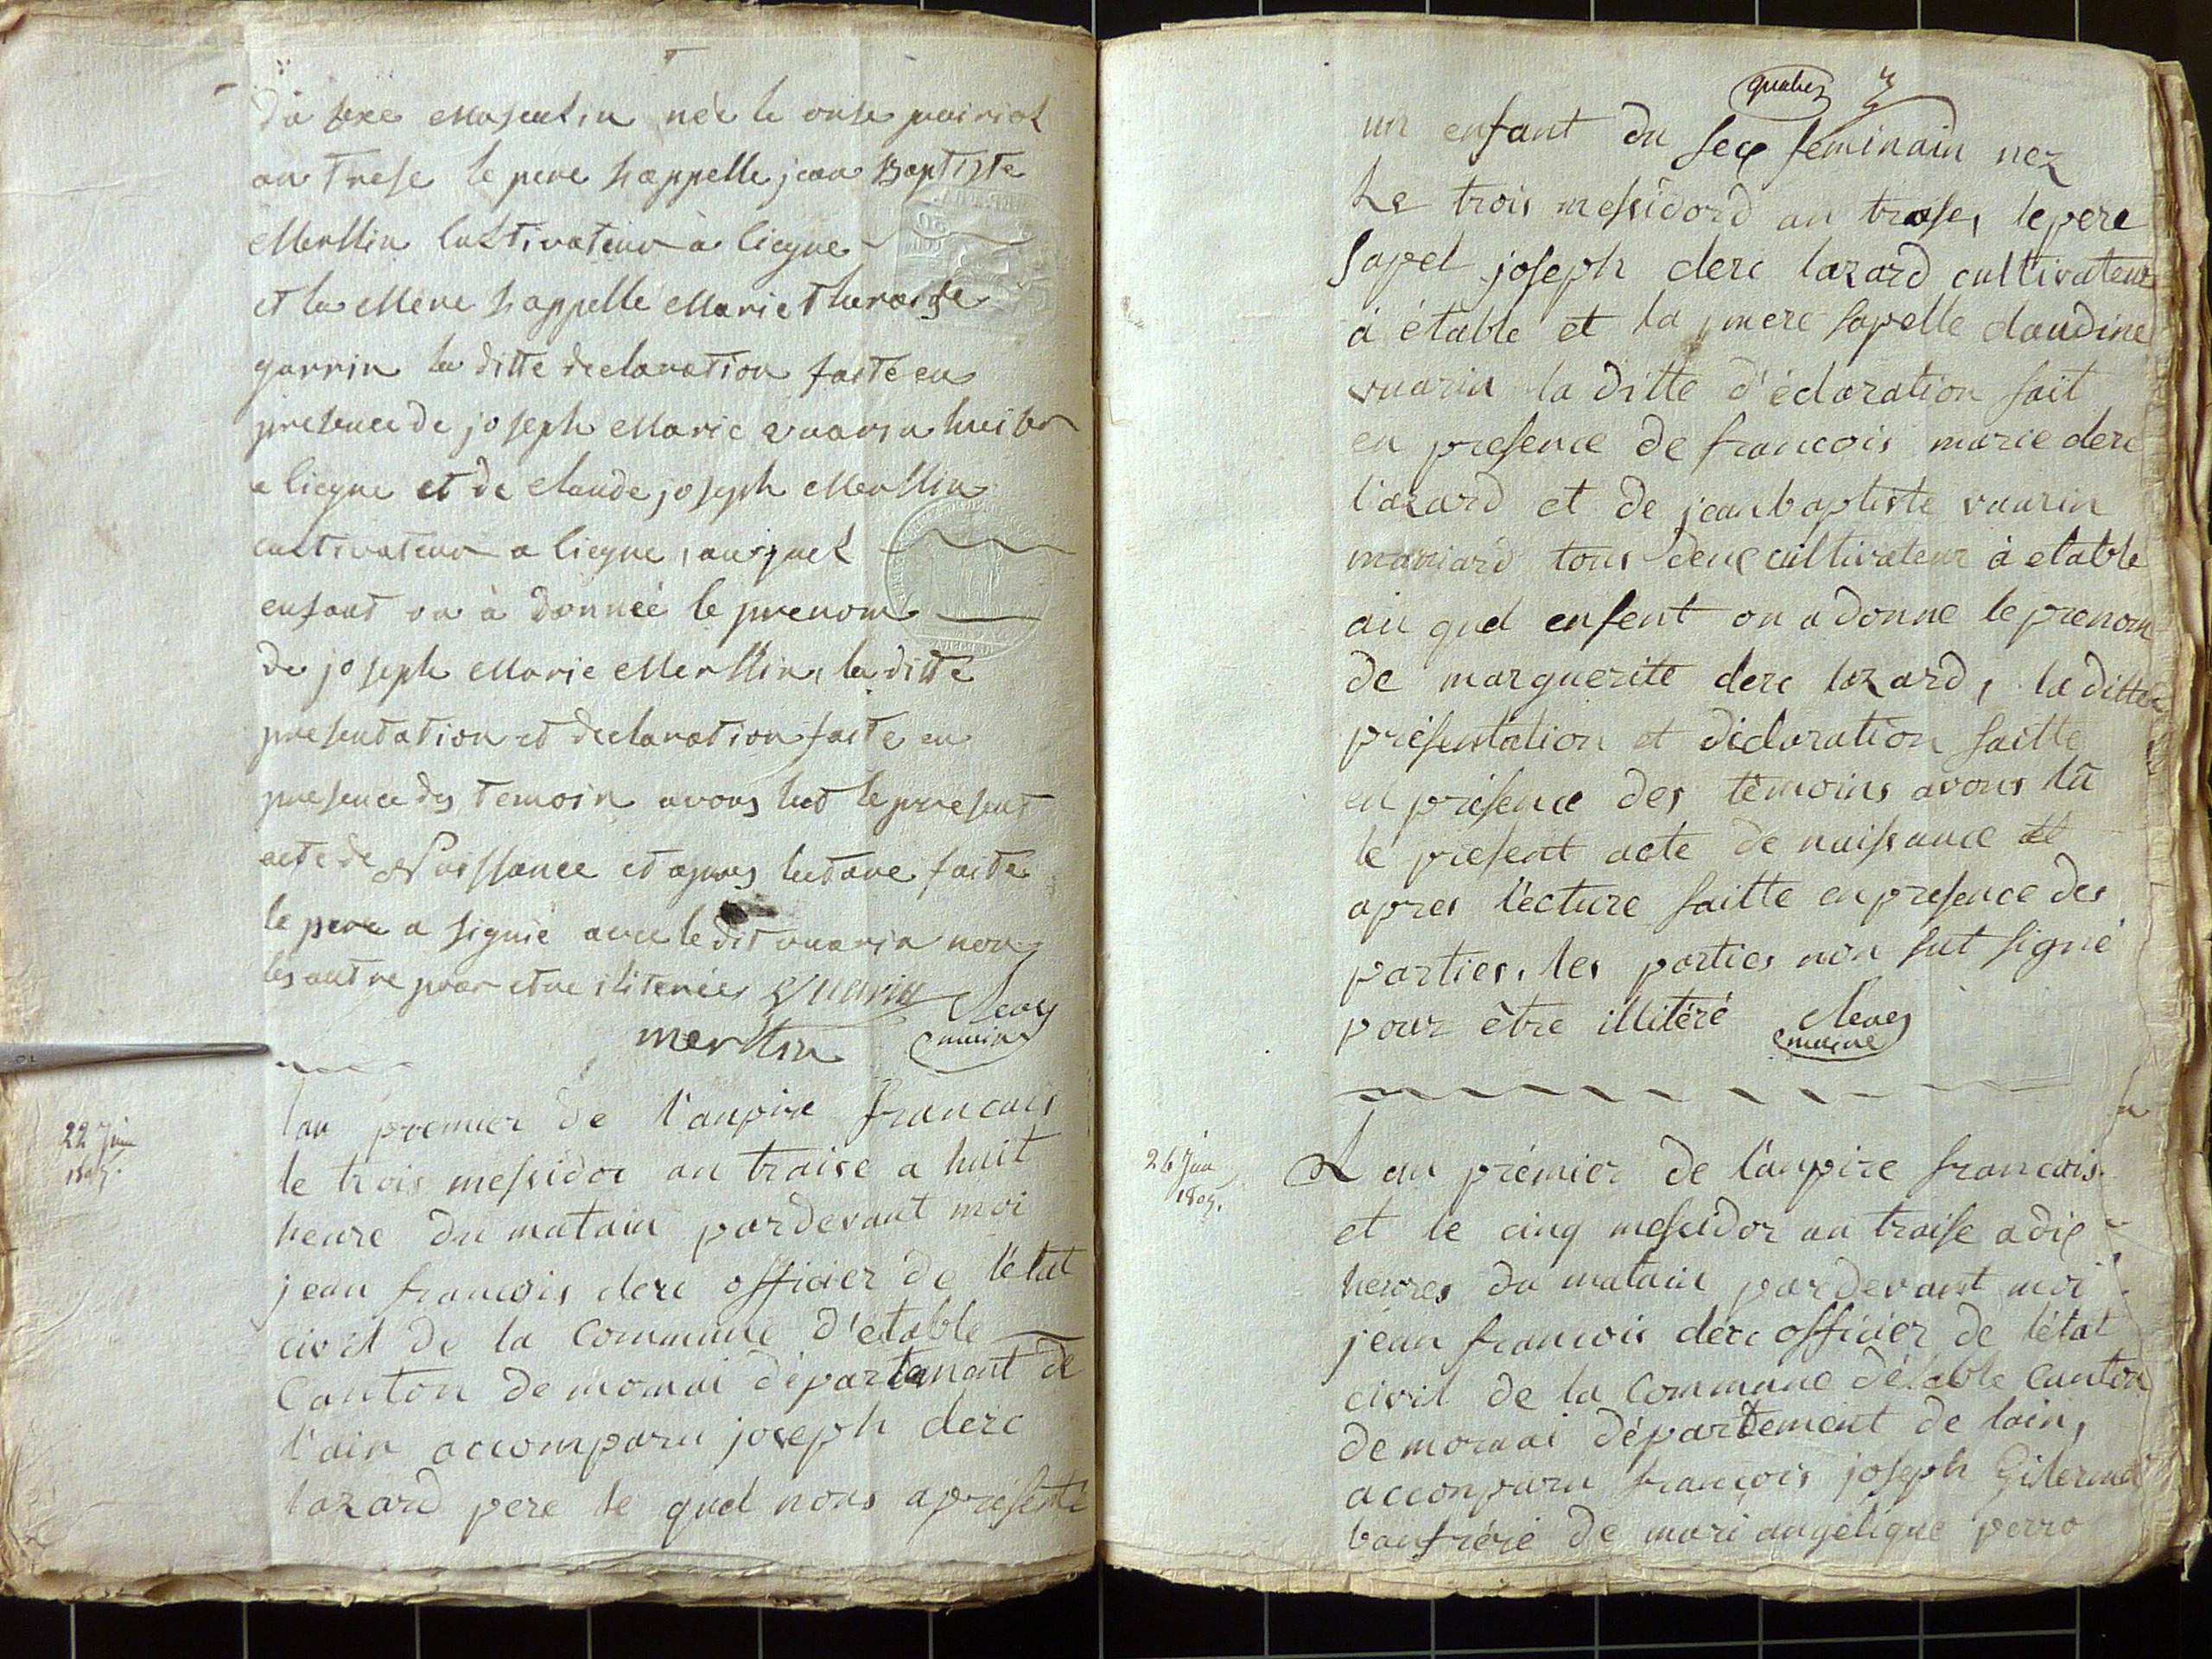 du sexe Masculin née le onse prairial
an trese le pere s'appelle jean Baptiste
Merllin Cultivateur à liegne
et la Mere s'appelle Marie theraise
guarrin la ditte declaration faite en
presence de joseph Marie vuarin huisier
a liegne et de claude joseph Merllin
cultivateur a liegne, auquel
enfant on à donneé le prenom
de joseph Marie Merllin, la ditte
presentation et declaration faite en
presence des temoin avons lut le present
acte de Naissance et apres lecture faite
le pere a signié avec le dit vuarin non
les autre pour etre iliterées vuarin
merllin
maire
22 Juin
1805.
lan premier de l'anpire francais
le trois messidor an traise a huit
heure du matain pardevant moi
jean francois derc officier de l'état
civil de la Commune d'etable
Canton de mornai départemant de
l'ain accomparu joseph derc
lazard pere le quel nous a présenté
quatre
un enfant du sex féminain nez
Le trois messidord an trase, le pere
sapel joseph derc lazard cultivateur
à étable et la mere sapelle claudine
vuarin la ditte d'éclaration fait
en presence de francois marie derc
l'azard et de jean baptiste vuarin
marriard tous deux cultivateur à etable
au quel enfent on a donne le prenom
de marguerite derc lazard, la ditte
présentation et déclaration faitte
en présence des témoins avons lû
le present acte de naissance et
apres l'ecture faitte en presence des
parties, les parties non sut signé
pour être illitéré
maire
26 Juin
1805.
Lan prémier de l'anpire francais
et le cinq messidor an traise a dix
heures du matain pardevant moi
jean francois derc officier de létat
civil de la Commune détable Canton
de mornai département de lain,
acconparu francois joseph Gilermet
baufrére de mari angélique perro